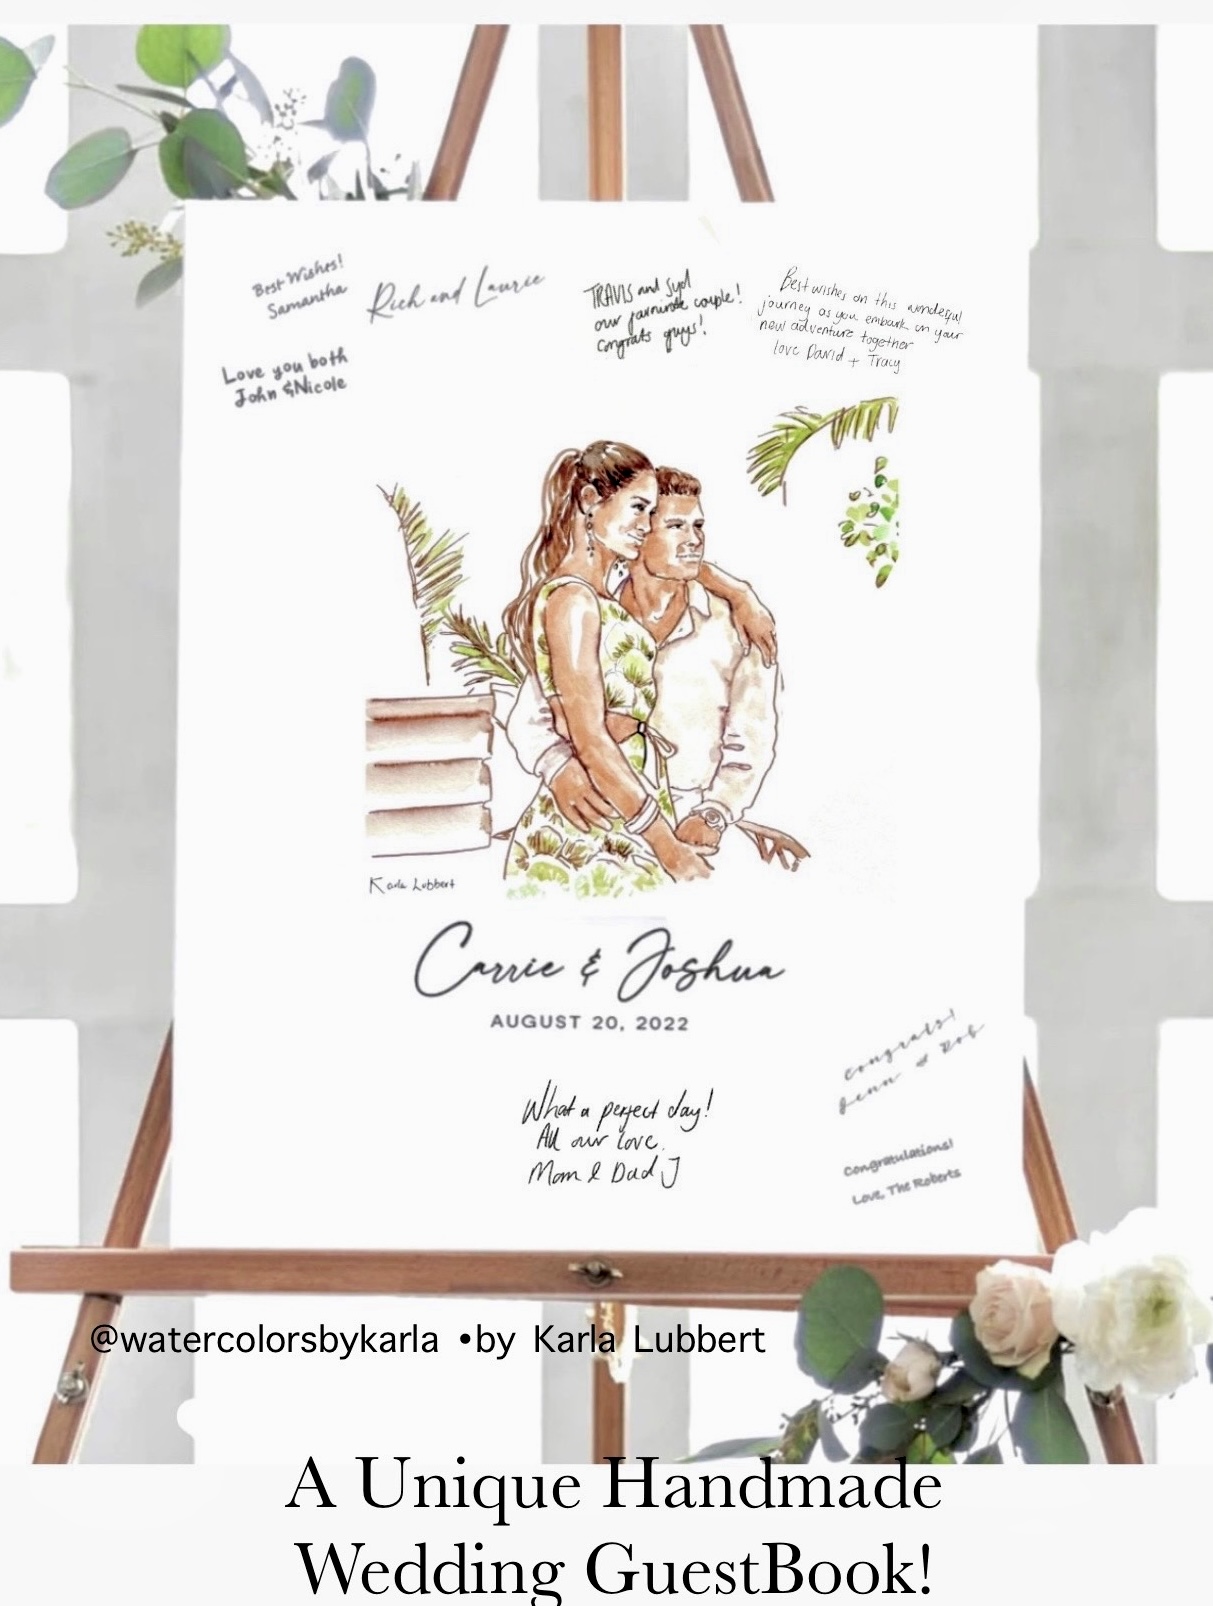 Best Wishes!
Samantha
Rich and Laurie
TRAVIS and Syd
our favourite couple!
congrats guys!
Best wishes on this wonderful
journey as you embark on your
new adventure together
love David + Tracy
Love you both
John & Nicole
Karla Lubbert
Carrie & Joshua
AUGUST 20, 2022
What a perfect day!
All our love.
Mom & Dad J
congrats!
Jenn & Rob
Congratulations!
Love, The Roberts
@watercolorsbykarla •by Karla Lubbert
A Unique Handmade
Wedding GuestBook!